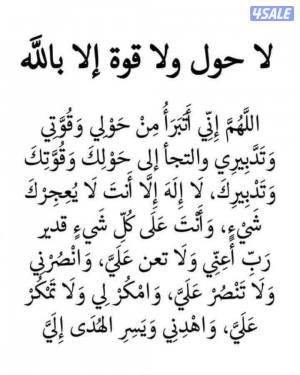 4SALE
لا حول ولا قوة إلا بالله
اللَّهُمَّ إِنِّي أَتَبَرَأُ مِنْ حَوْلِي وَقُوَّتِي
وَتَدَّبِيرِي والتجأ إلى حَوْلِكَ وَقُوَّتِكَ
وَتَدْبِيرِكَ، لَا إِلَهَ إِلَّا أَنتَ لَا يُعجِزكَ
شَيْءٍ، وَأَنْتَ عَلَى كُلِّ شَيءٍ قدير
رَبِّ أَعِنِّي وَلَا تعن عَلَيَّ، وَانْصُرْنِي
وَلَا تَنْصُرْ عَلَيَّ، وَامْكُرْ لِي وَلَا تَمْكُرْ
عَلَيَّ، وَاهْدِنِي وَيَسِرِ الْهُدَى إِلَيَّ